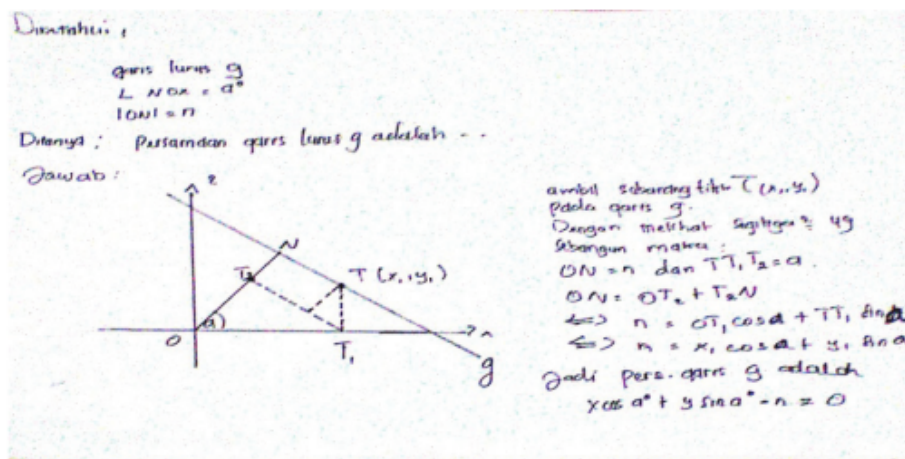 Diketahui,
garis lurus g
∠ NOX = a°
|ON| = n
Ditanya : Persamaan garis lurus g adalah ..
Jawab :
ambil sebarang titik T(x₁,y₁)
pada garis g.
Dengan melihat segitiga² yg
sebangun maka :
ON = n dan TT₁T₂ = a
ON = OT₂ + T₂N
<=> n = OT₁ cos a + TT₁ sin a
<=> n = x₁ cos a + y₁ sin a
Jadi pers. garis g adalah
x cos a° + y sin a° - n = 0
N
T₂
T (x₁,y₁)
a
O
T₁
g